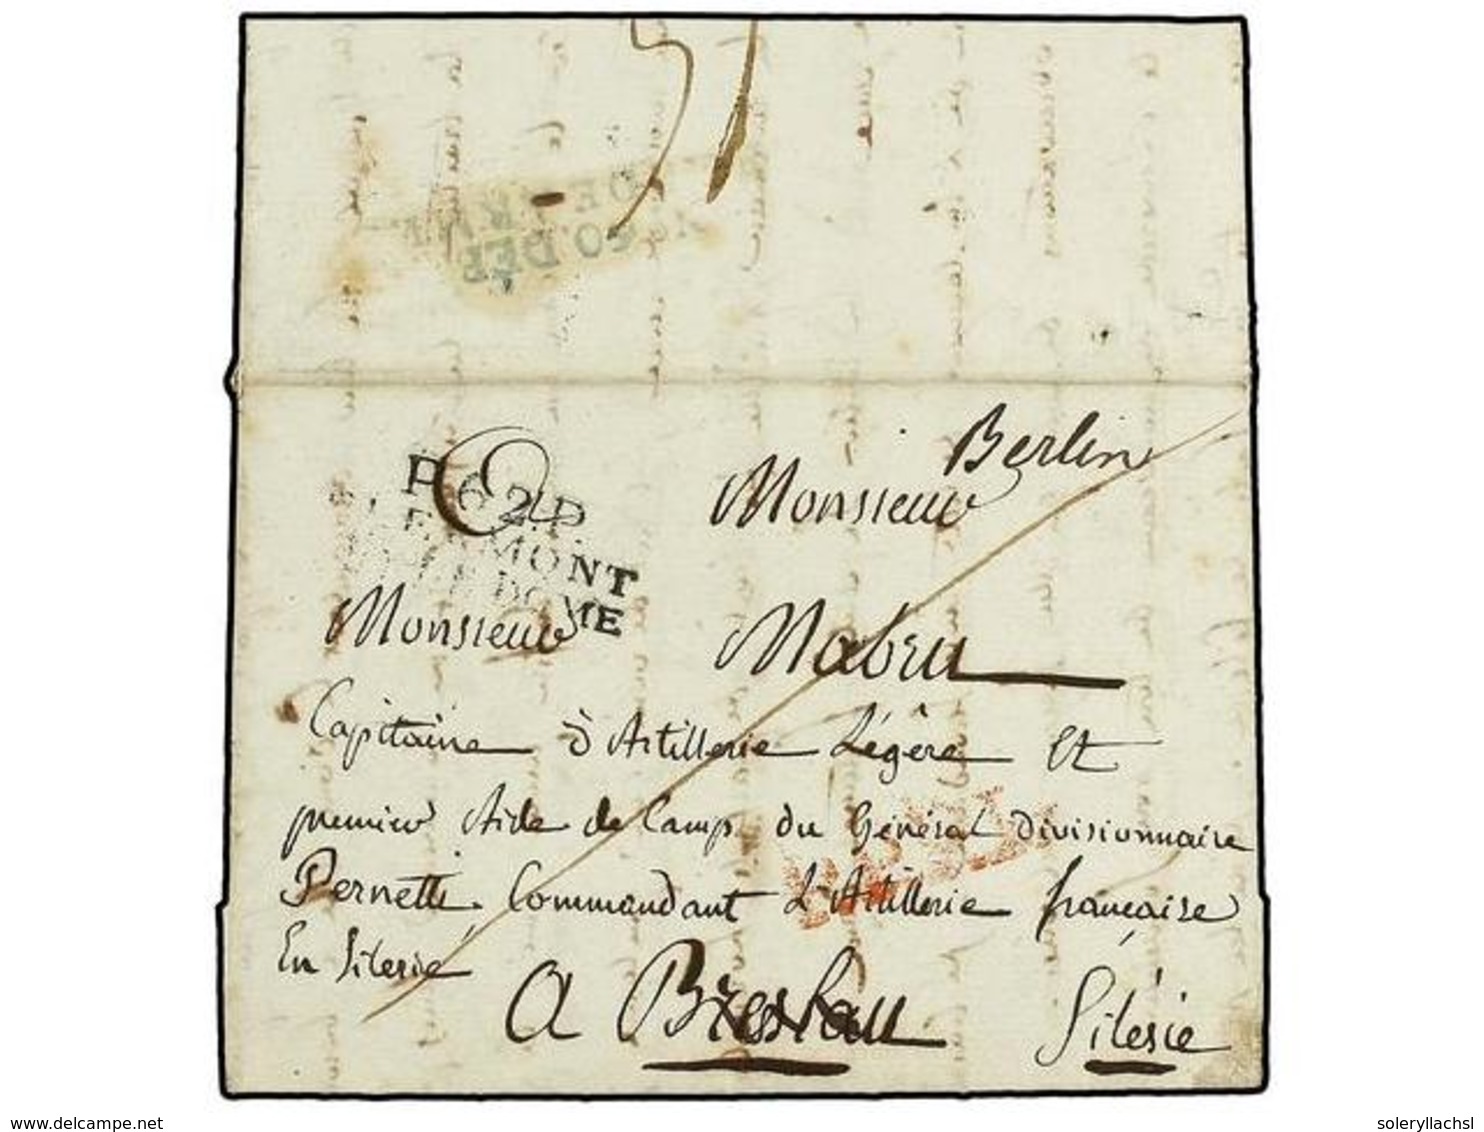 No. 60. DEF
Berlin
P. 62. P.
Monsieur
CLERMONT
DOME
Monsieur Mabru
Capitaine d'Artillerie Légêre Et
premier Aide de Camp du Général divisionnaire
Pernetti. Commandant L'Artillerie française
En Silesie
A Breslau Silésie
www.delcampe.net
soleryllachsl